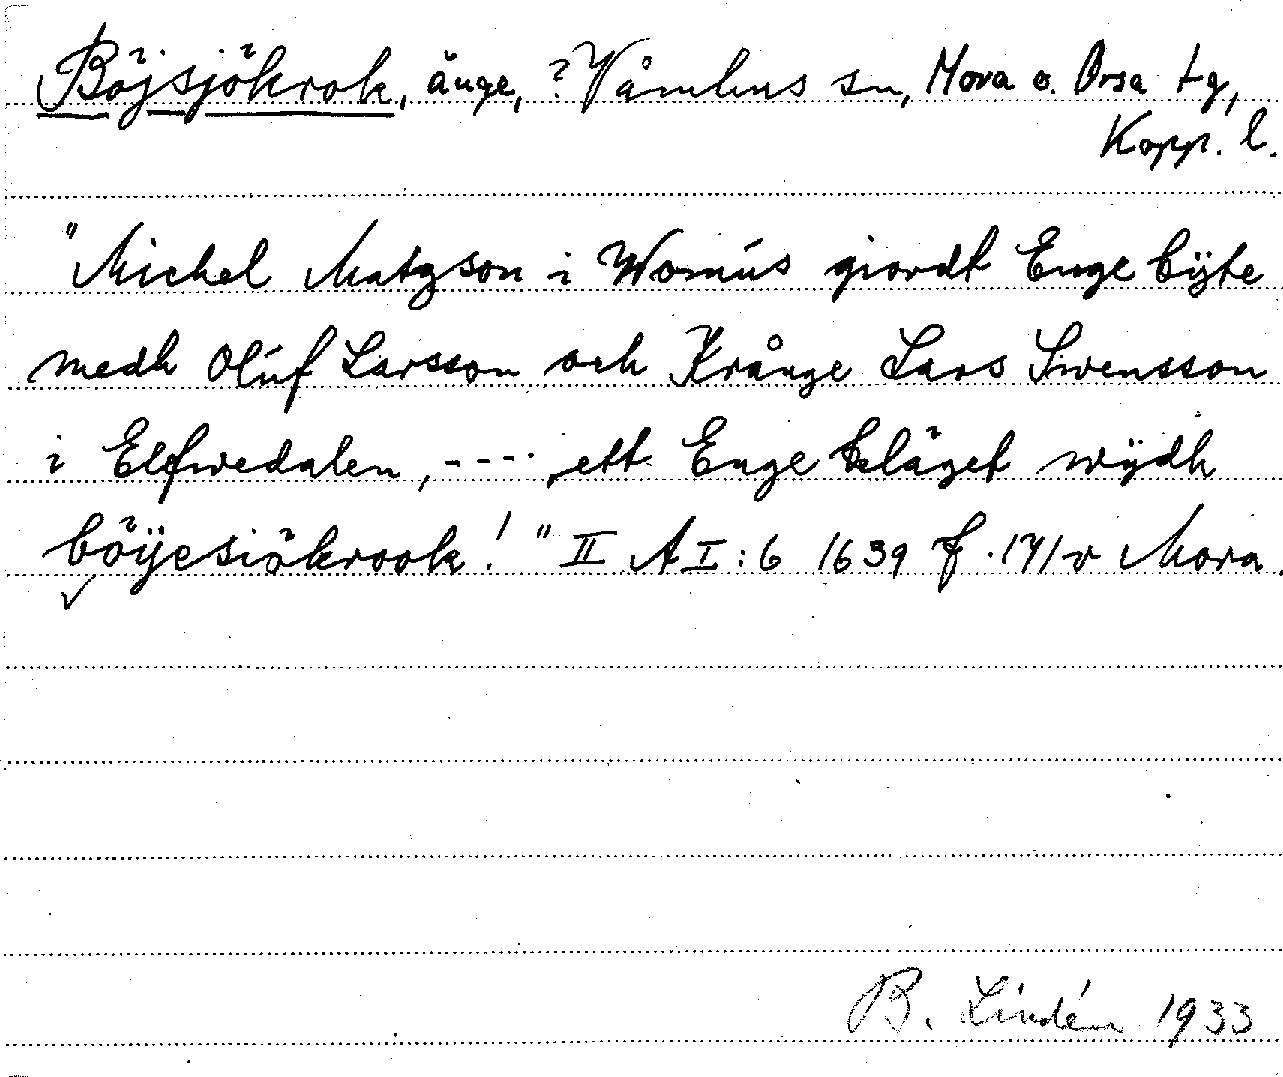 Böjsjökrok, änge, ? Våmhus sn, Mora o. Orsa tg,
Kopp. l.
"Michel Matzson i Womús giordt Enge bÿte
medh Olúf Larsson och Krånge Lars Swensson
i Elfwedalen, ---- ett Enge läget wÿdh
böÿesiökrook!" II A I:6 1639 f. 171v Mora.
B. Lindén 1933